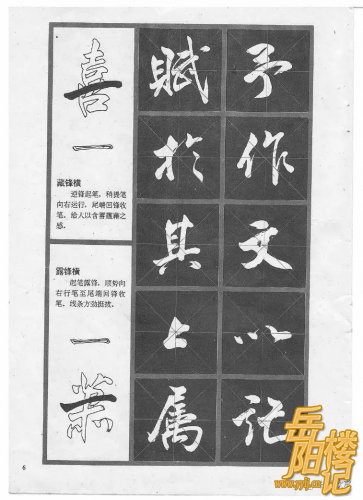 予作文以记
赋于其上属
喜
一
藏锋横
逆锋起笔，稍提笔
向右运行，尾端回锋收
笔，给人以含蓄蕴藉之
感。
露锋横
起笔露锋，顺势向
右行笔至尾端回锋收
笔，线条方劲挺拔。
一
6
岳阳楼记